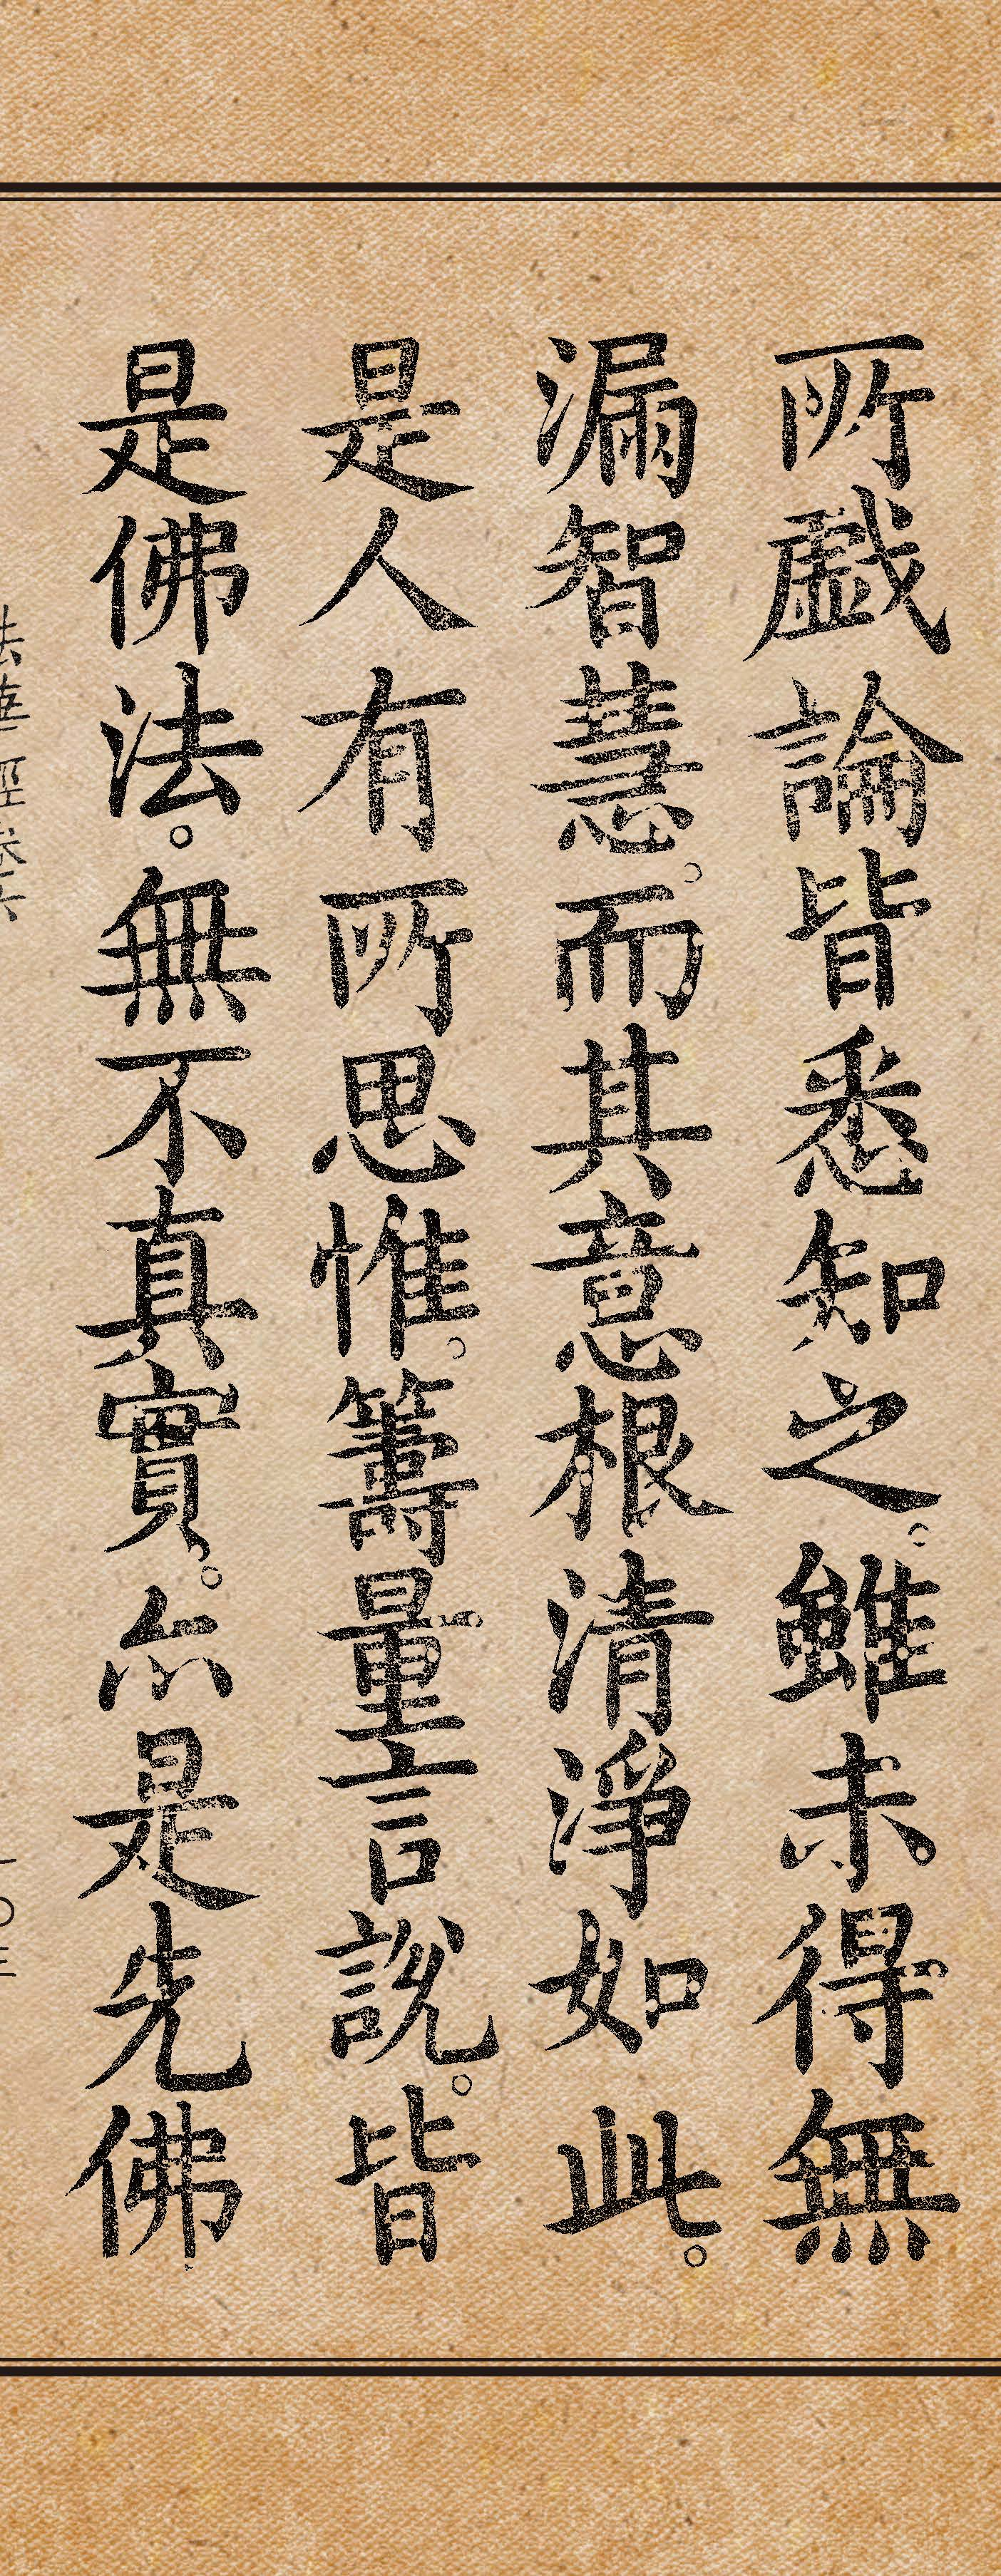 所戱論皆悉知之。雖未得無
漏智慧。而其意根清淨如此。
是人有所思惟。籌量言說。皆
是佛法。無不真實。亦是先佛
法華經卷六
一〇三